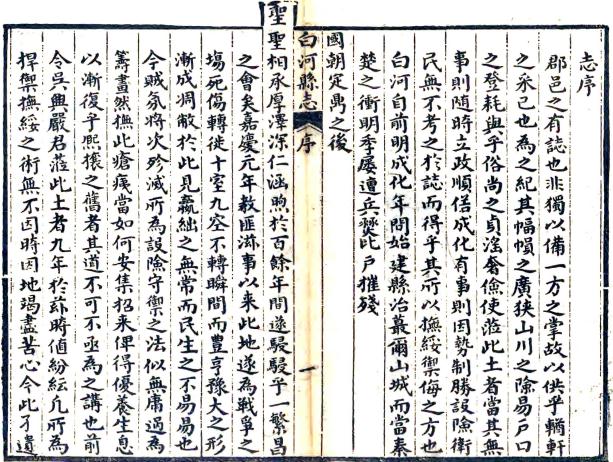 志序
郡邑之有誌也非獨以備一方之掌故以供乎輶軒
之采已也為之紀其幅幀之廣狹山川之險易戶口
之登耗與乎俗尚之貞淫奢儉使蒞此土者當其無
事則随時立政順俗成化有事則因勢制勝設險衛
民無不考之於誌而得乎其所以撫綏禦侮之方也
白河自前明成化年間始建縣治蕞爾山城而當秦
楚之衝明季屡遭兵燹比戶摧殘
國朝定鼎之後
白河縣志
序
一
聖聖相承厚澤深仁涵煦於百餘年間遂駸駸乎一繁昌
之會矣嘉慶元年教匪滋事以來此地遂為戰爭之
塲死傷轉徙十室九空不轉瞬間而豐亨豫大之形
漸成凋敝於此見贏絀之無常而民生之不易易也
令賊氛將次殄滅所為設險守禦之法似無庸過為
籌畫然撫此瘡痍當如何安集招来俾得優養生息
以漸復乎熙攘之舊者其道不可不亟為之講也前
令吳興嚴君蒞此土者九年於茲時值紛紜凡所為
捍禦撫綏之術無不因時因地竭盡苦心今此才遺